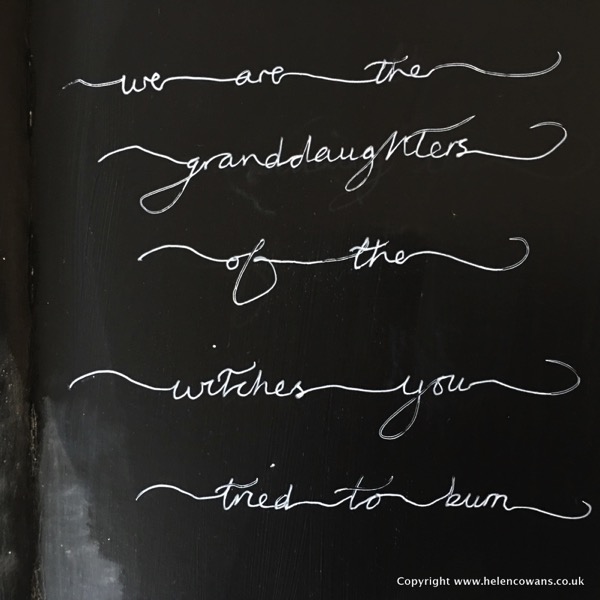 we are the
granddaughters
of the
witches you
tried to burn
Copyright www.helencowans.co.uk